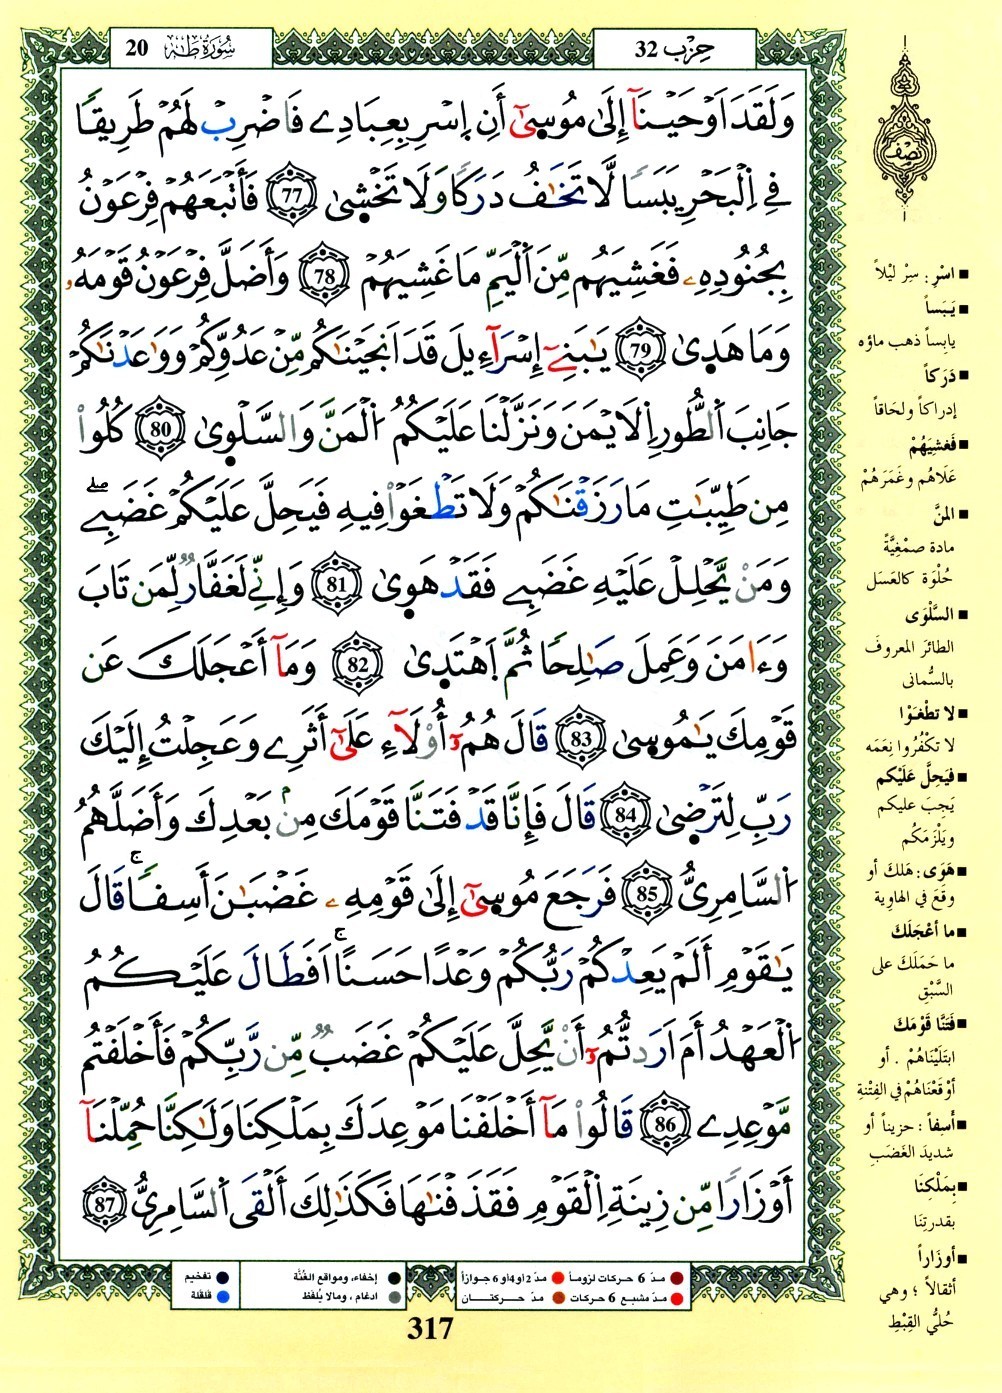 حِزْب 32
سُورَةُ طَهَ 20
وَلَقَدَ اَوْحَيْنَآ إِلَىٰ مُوسِىٰٓ أَنِ اِسْرِ بِعِبَادِے فَاضْرِبْ لَهُمْ طَرِيقاً
فِے اِلْبَحْرِ يَبَساً لَّا تَخَٰفُ دَرَكاً وَلَا تَخْشِىٰ 77 فَأَتْبَعَهُمْ فِرْعَوْنُ
بِجُنُودِهِۦ فَغَشِيَهُم مِّنَ اَلْيَمِّ مَا غَشِيَهُمْ 78 وَأَضَلَّ فِرْعَوْنُ قَوْمَهُۥ
وَمَا هَدِىٰ 79 يَٰبَنِےٓ إِسْرَآءِيلَ قَدَ اَنجَيْنَٰكُم مِّنْ عَدُوِّكُمْ وَوَٰعَدْنَٰكُمْ
جَانِبَ اَلطُّورِ اِلَايْمَنَ وَنَزَّلْنَا عَلَيْكُمُ اَلْمَنَّ وَالسَّلْوِىٰ 80 كُلُواْ
مِن طَيِّبَٰتِ مَا رَزَقْنَٰكُمْ وَلَا تَطْغَوْاْ فِيهِ فَيَحِلَّ عَلَيْكُمْ غَضَبِے صلے
وَمَنْ يَّحْلِلْ عَلَيْهِ غَضَبِے فَقَدْ هَوِىٰ 81 وَإِنِّے لَغَفَّارٌ لِّمَن تَابَ
وَءَامَنَ وَعَمِلَ صَٰلِحاً ثُمَّ اَهْتَدِىٰ 82 وَمَآ أَعْجَلَكَ عَن
قَوْمِكَ يَٰمُوسِىٰ 83 قَالَ هُمُۥٓ أُوْلَآءِ عَلَىٰٓ أَثَرِے وَعَجِلْتُ إِلَيْكَ
رَبِّ لِتَرْضِىٰ 84 قَالَ فَإِنَّا قَدْ فَتَنَّا قَوْمَكَ مِنۢ بَعْدِكَ وَأَضَلَّهُمُ
اَلسَّامِرِيُّ 85 فَرَجَعَ مُوسِىٰٓ إِلَىٰ قَوْمِهِۦ غَضْبَٰنَ أَسِفاًۚ قَالَ
يَٰقَوْمِ أَلَمْ يَعِدْكُمْ رَبُّكُمْ وَعْداً حَسَناًۚ اَفَطَالَ عَلَيْكُمُ
اَلْعَهْدُ أَمَ اَرَدتُّمُۥٓ أَنْ يَّحِلَّ عَلَيْكُمْ غَضَبٌ مِّن رَّبِّكُمْ فَأَخْلَفْتُم
مَّوْعِدِے 86 قَالُواْ مَآ أَخْلَفْنَا مَوْعِدَكَ بِمَلْكِنَا وَلَٰكِنَّا حُمِّلْنَآ
أَوْزَاراً مِّن زِينَةِ اِلْقَوْمِ فَقَذَفْنَٰهَا فَكَذَٰلِكَ أَلْقَى اَلسَّامِرِيُّ 87
نصف
■ اسْرِ : سِرْ لَيْلاً
■ يَبَساً
يابِساً ذهب ماؤه
■ دَرَكاً
إدراكاً ولحَاقاً
■ فَغَشِيَهُمْ
عَلَاهُم وغَمَرَهُمْ
■ المنَّ
مادة صمْغِيَّةً
حُلْوَة كالعَسَل
■ السَّلْوَى
الطائرَ المعروفَ
بالسُّمانى
■ لا تطْغَوْا
لا تكْفُرُوا نِعَمَه
■ فيَحِلَّ عَلَيْكم
يَجِبَ عليكم
ويَلْزَمَكُم
■ هَوَى : هَلكَ أو
وقعَ في الهاوِية
■ ما أعْجَلَكَ
ما حَمَلَكَ على
السَّبْقِ
■ فَتَنَّا قَوْمَكَ
ابتَلَيْنَاهُمْ . أو
أوْقَعْنَاهُمْ في الفِتْنةِ
■ أسِفاً : حزيناً أو
شديدَ الغَضَبِ
■ بِمَلْكِنَا
بقدرتِنَا
■ أوزَاراً
أثقالاً ؛ وهي
حُليُّ القِبْطِ
مدّ 6 حركات لزوماً
مدّ 2 أو 4 أو 6 جوازاً
إخفاء، ومواقع الغُنَّة
تفخيم
مدّ مشبع 6 حركات
مدّ حركتان
ادغام ، ومالا يُلفَظ
قلقلة
317